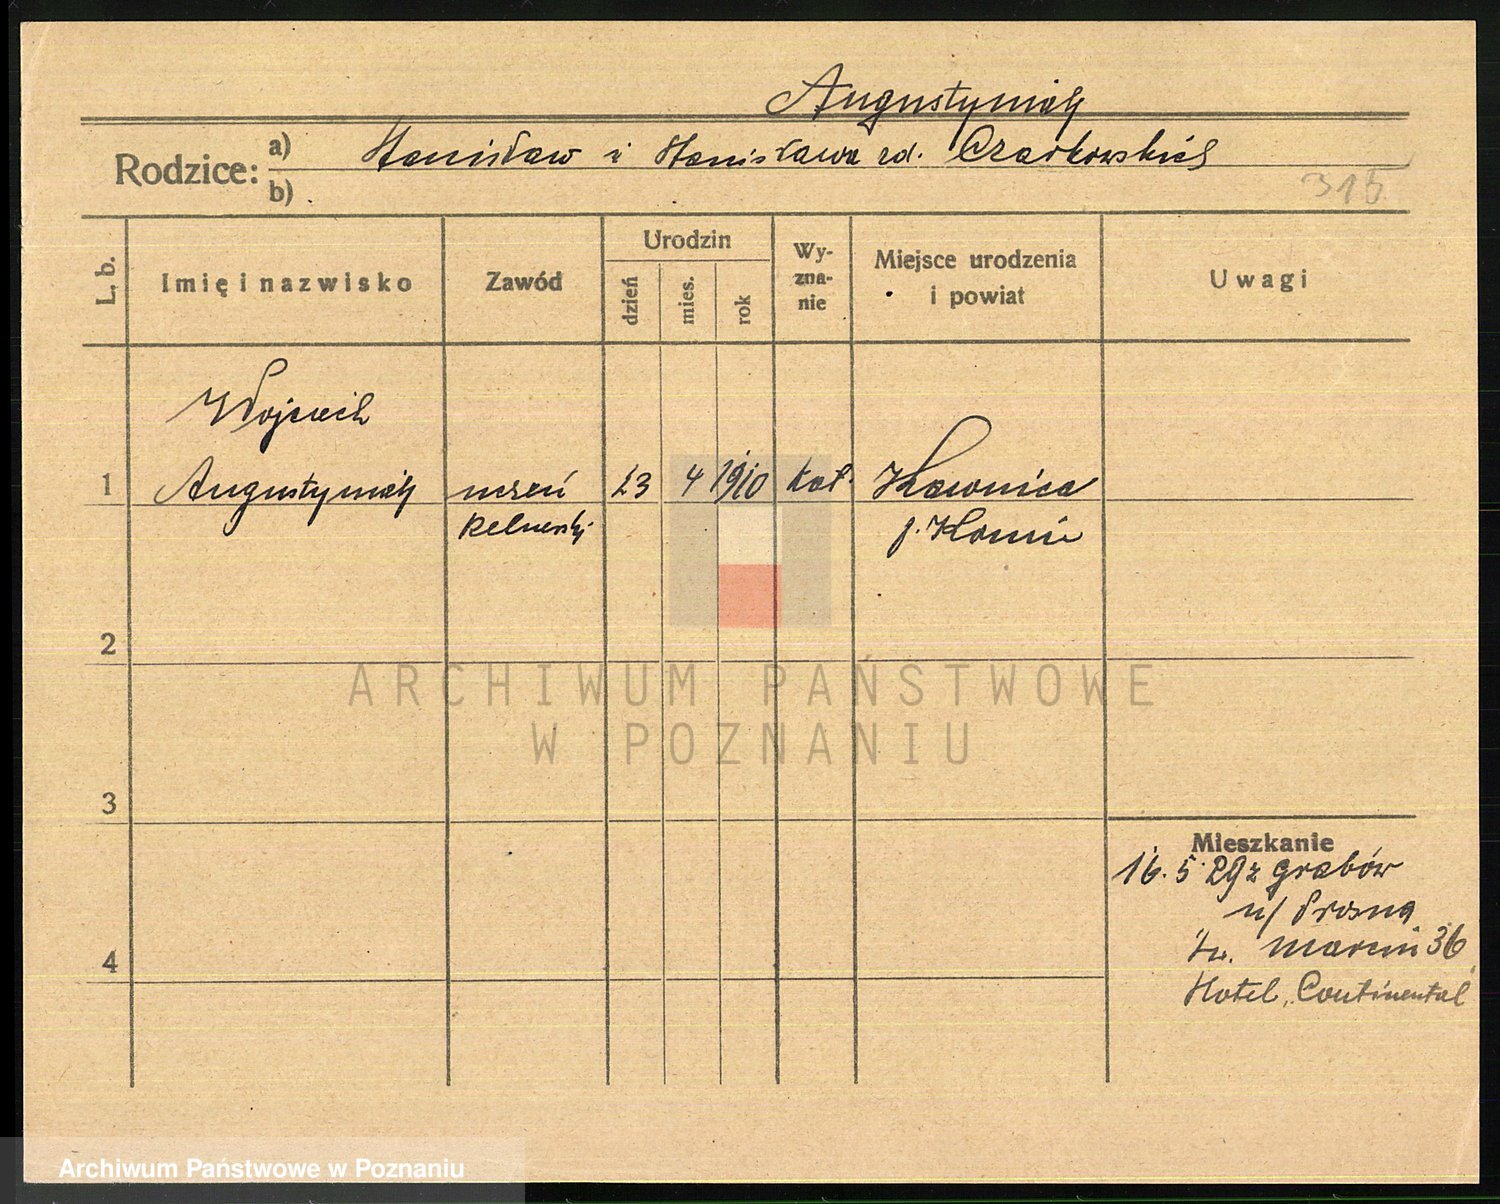 Augustyniak
Rodzice: a) Stanisław i Stanisława zd. Czarkowskich
b)
315
L. b. Imię i nazwisko Zawód Urodzin dzień mies. rok Wyznanie Miejsce urodzenia i powiat Uwagi
Wojciech
1 Augustyniak uczeń 23 4 1910 kat. Kawnica
kelnerski p. Konin
2
ARCHIWUM PAŃSTWOWE
W POZNANIU
3
Mieszkanie
16. 5 29 z Grabów
n/ Prosną
4 Św. Marcin 36
Hotel „Continental
Archiwum Państwowe w Poznaniu